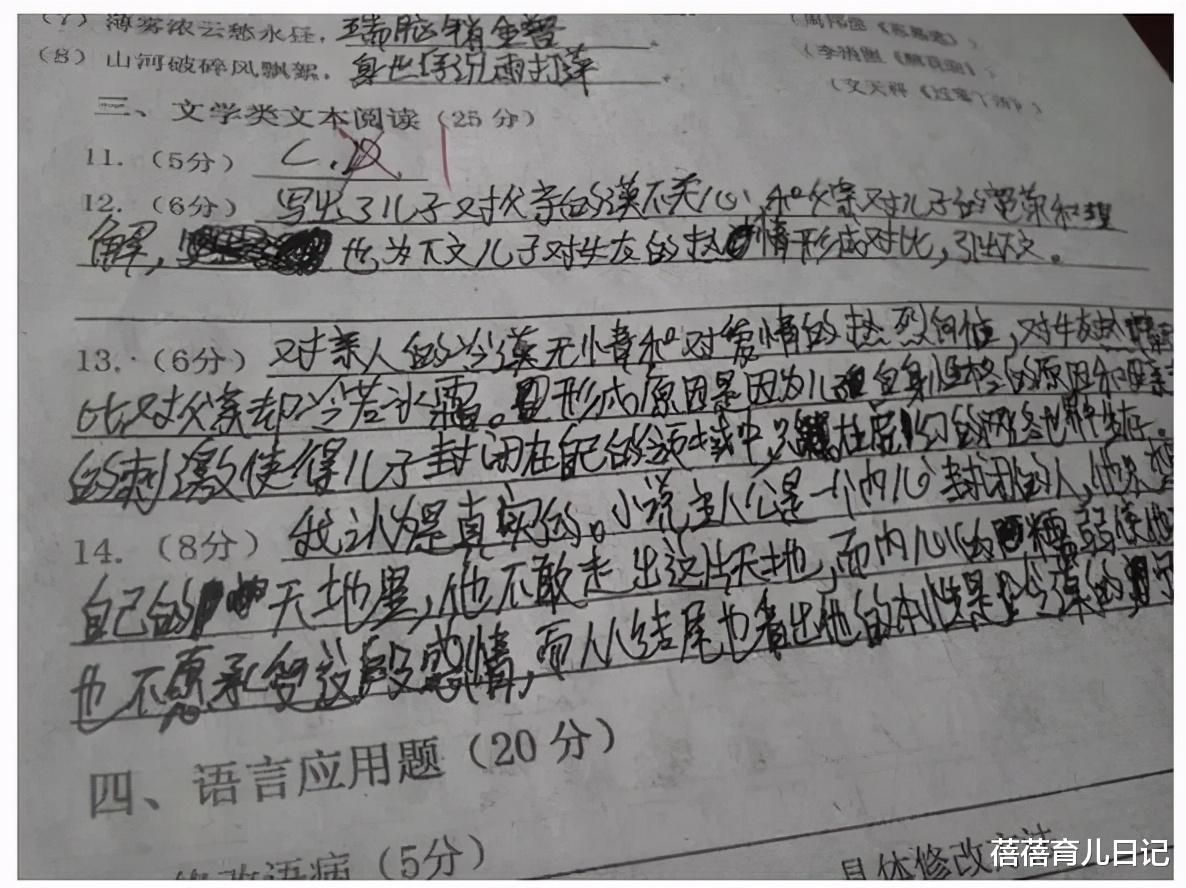 (7) 薄雾浓云愁永昼，瑞脑销金兽。
(8) 山河破碎风飘絮，身世浮沉雨打萍。
(文天祥《过零丁洋》)
三、文学类文本阅读（25分）
11.（5分） C.D
12.（6分） 写出了儿子对父亲的漠不关心，和父亲对儿子的宽容和理
解，也为下文儿子对女友的热情形成对比，引出下文。
13.（6分） 对亲人的冷漠无情和对爱情的热烈，对女友热
对父亲却冷若冰霜。形成原因是因为儿自身性格的原因和
的刺激使得儿子封闭在自己的领域中，在虚幻的网络世界中生存。
14.（8分） 我认为是真实的。小说主人公是一个内心封闭的人，他
自己的天地里，他不敢走出这片天地，而内心的懦弱使他
也不愿承受这段感情，而从结尾也看出他的本性是冷漠的
四、语言应用题（20分）
修改语病（5分）
具体修改方法
蓓蓓育儿日记